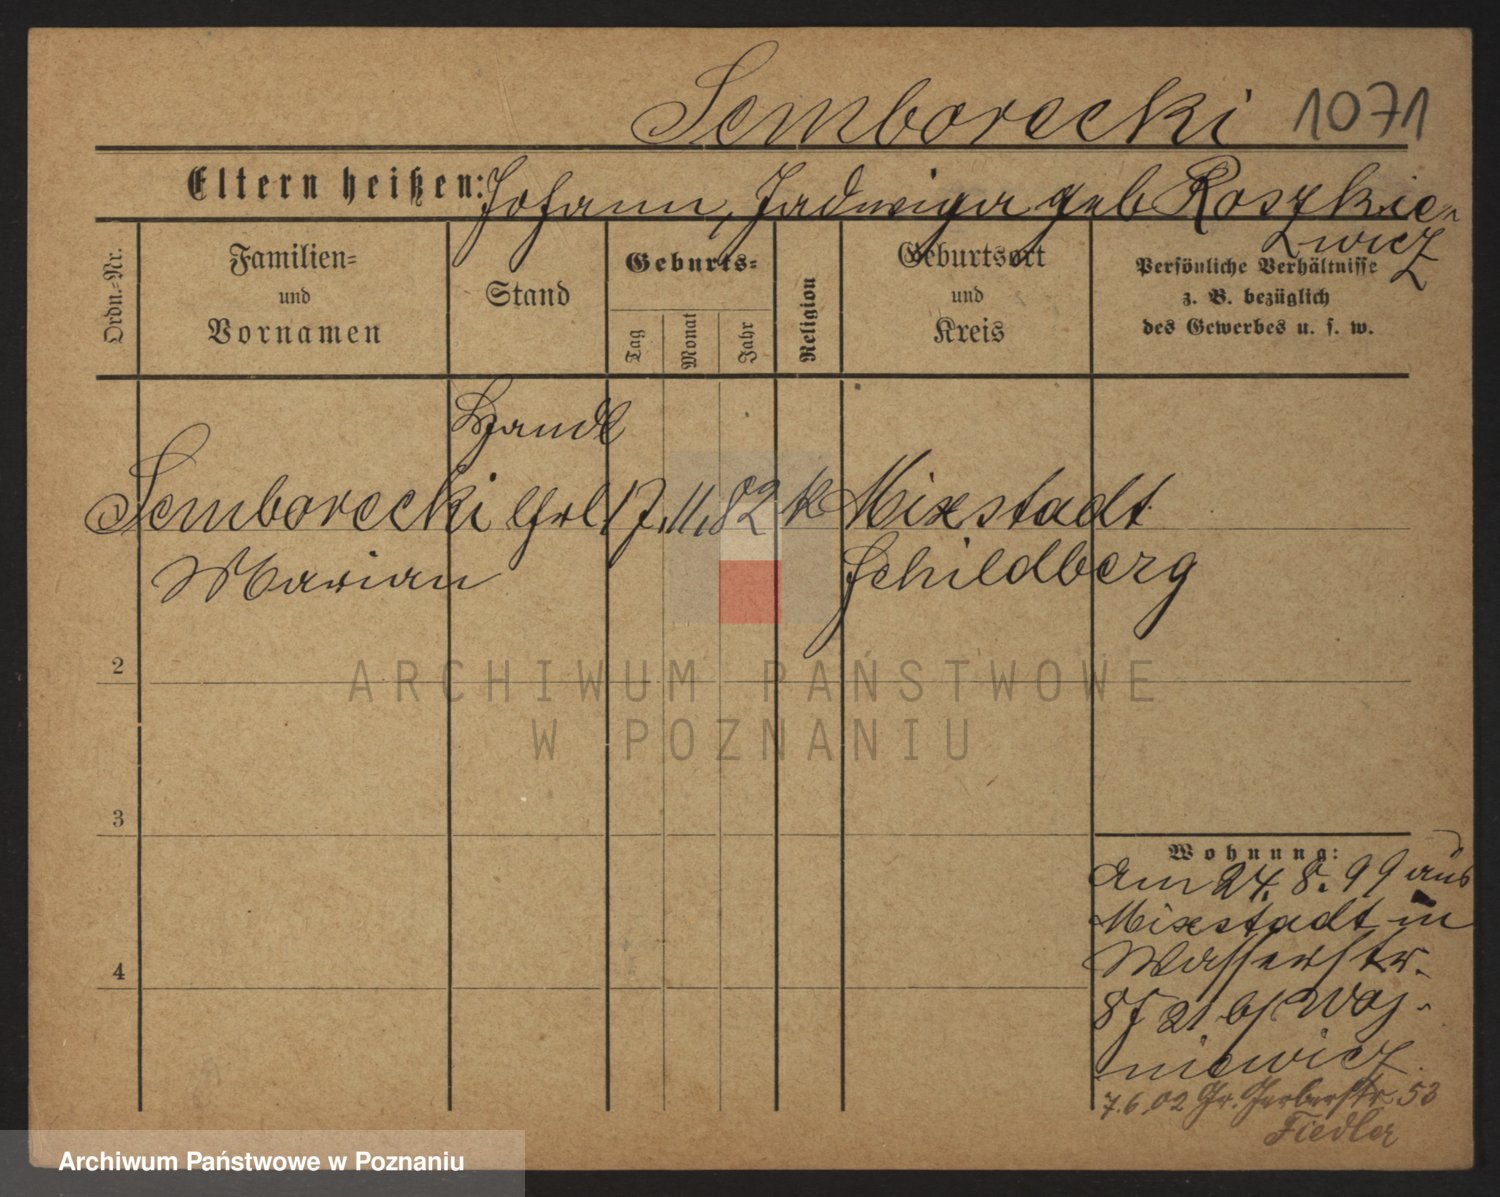 Semborecki 1071
Eltern heißen: Johann, Jadwiga geb Roszkie-
wicz
Ordn.-Nr.
Familien-
und
Vornamen
Stand
Geburts-
Tag
Monat
Jahr
Religion
Geburtsort
und
Kreis
Persönliche Verhältnisse
z. B. bezüglich
des Gewerbes u. s. w.
Handl
Semborecki Lhrl 17. 11. 82 k Mixstadt
Marian Schildberg
2
ARCHIWUM PAŃSTWOWE
W POZNANIU
3
4
Wohnung:
Am 24. 8. 99 aus
Mixstadt in
Wasserstr.
8/ 21 b/ Woj-
niewicz
7.6.02 Gr. Gerberstr. 53
Fiedler
Archiwum Państwowe w Poznaniu